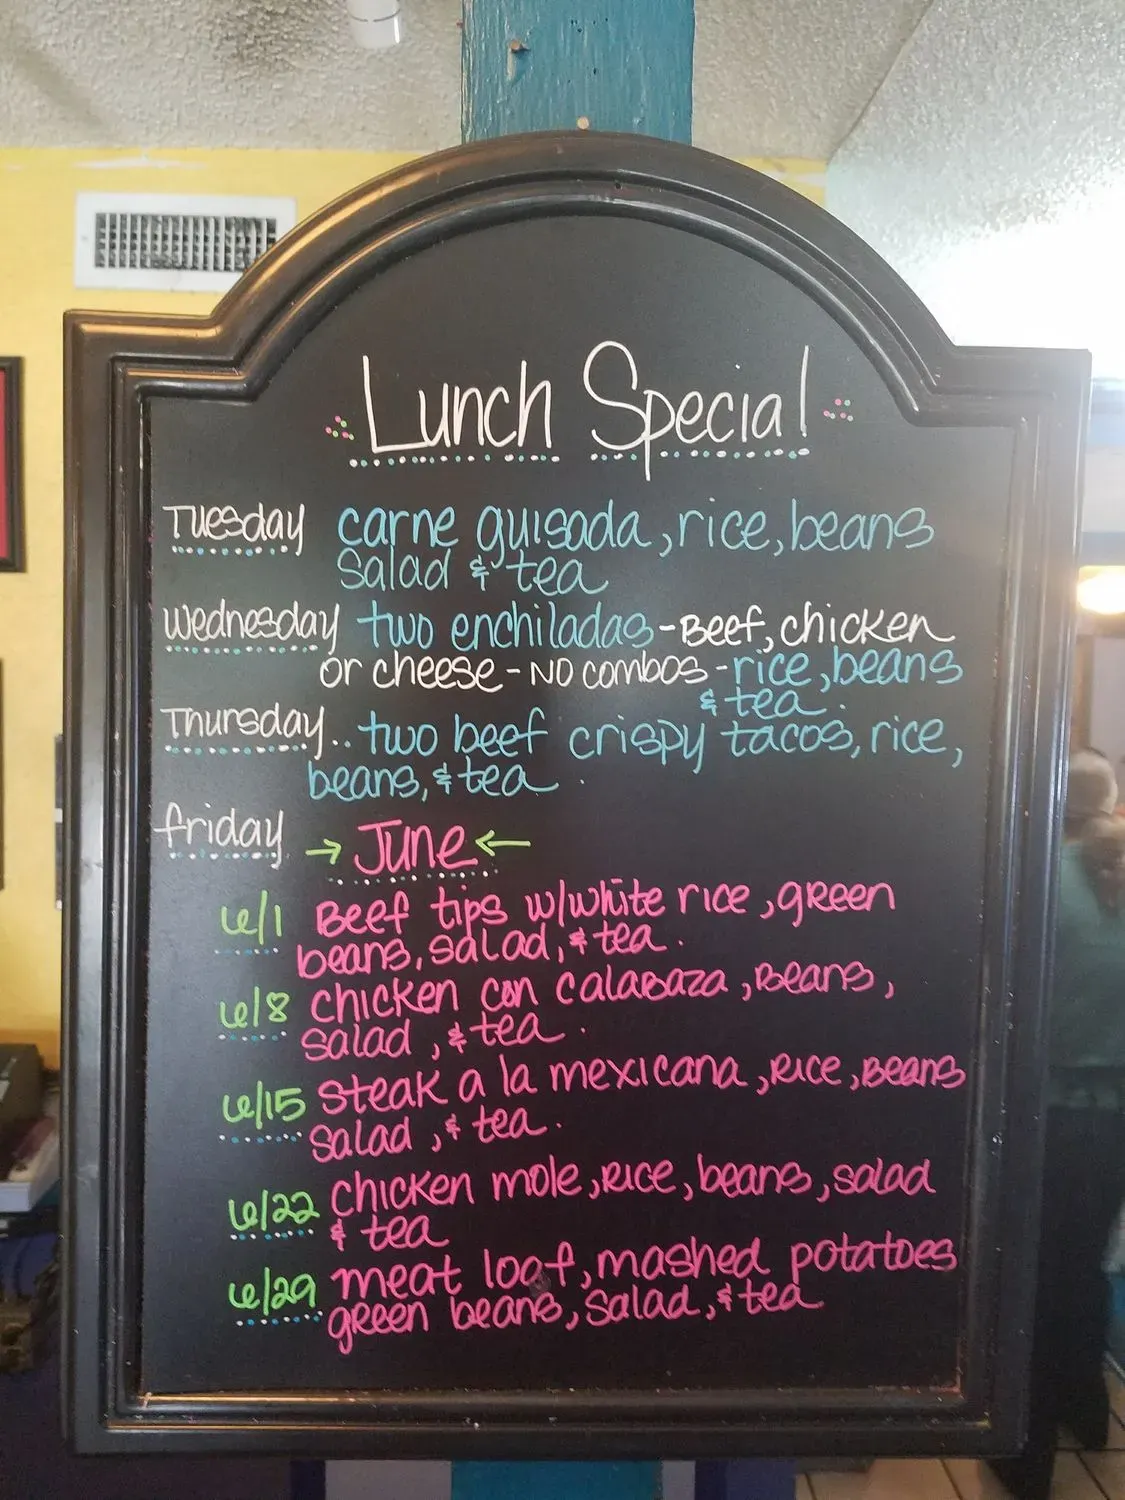 Lunch Special
Tuesday carne guisada, rice, beans
salad & tea
Wednesday two enchiladas - Beef, chicken
or cheese - NO combos - rice, beans
& tea.
Thursday.. two beef crispy tacos, rice,
beans, & tea.
friday → June ←
6/1 Beef tips w/white rice, green
beans, salad, & tea.
6/8 chicken con calabaza, Beans,
salad, & tea.
6/15 steak a la mexicana, Rice, Beans
salad, & tea.
6/22 chicken mole, Rice, beans, salad
& tea
6/29 meat loaf, mashed potatoes
green beans, salad, & tea